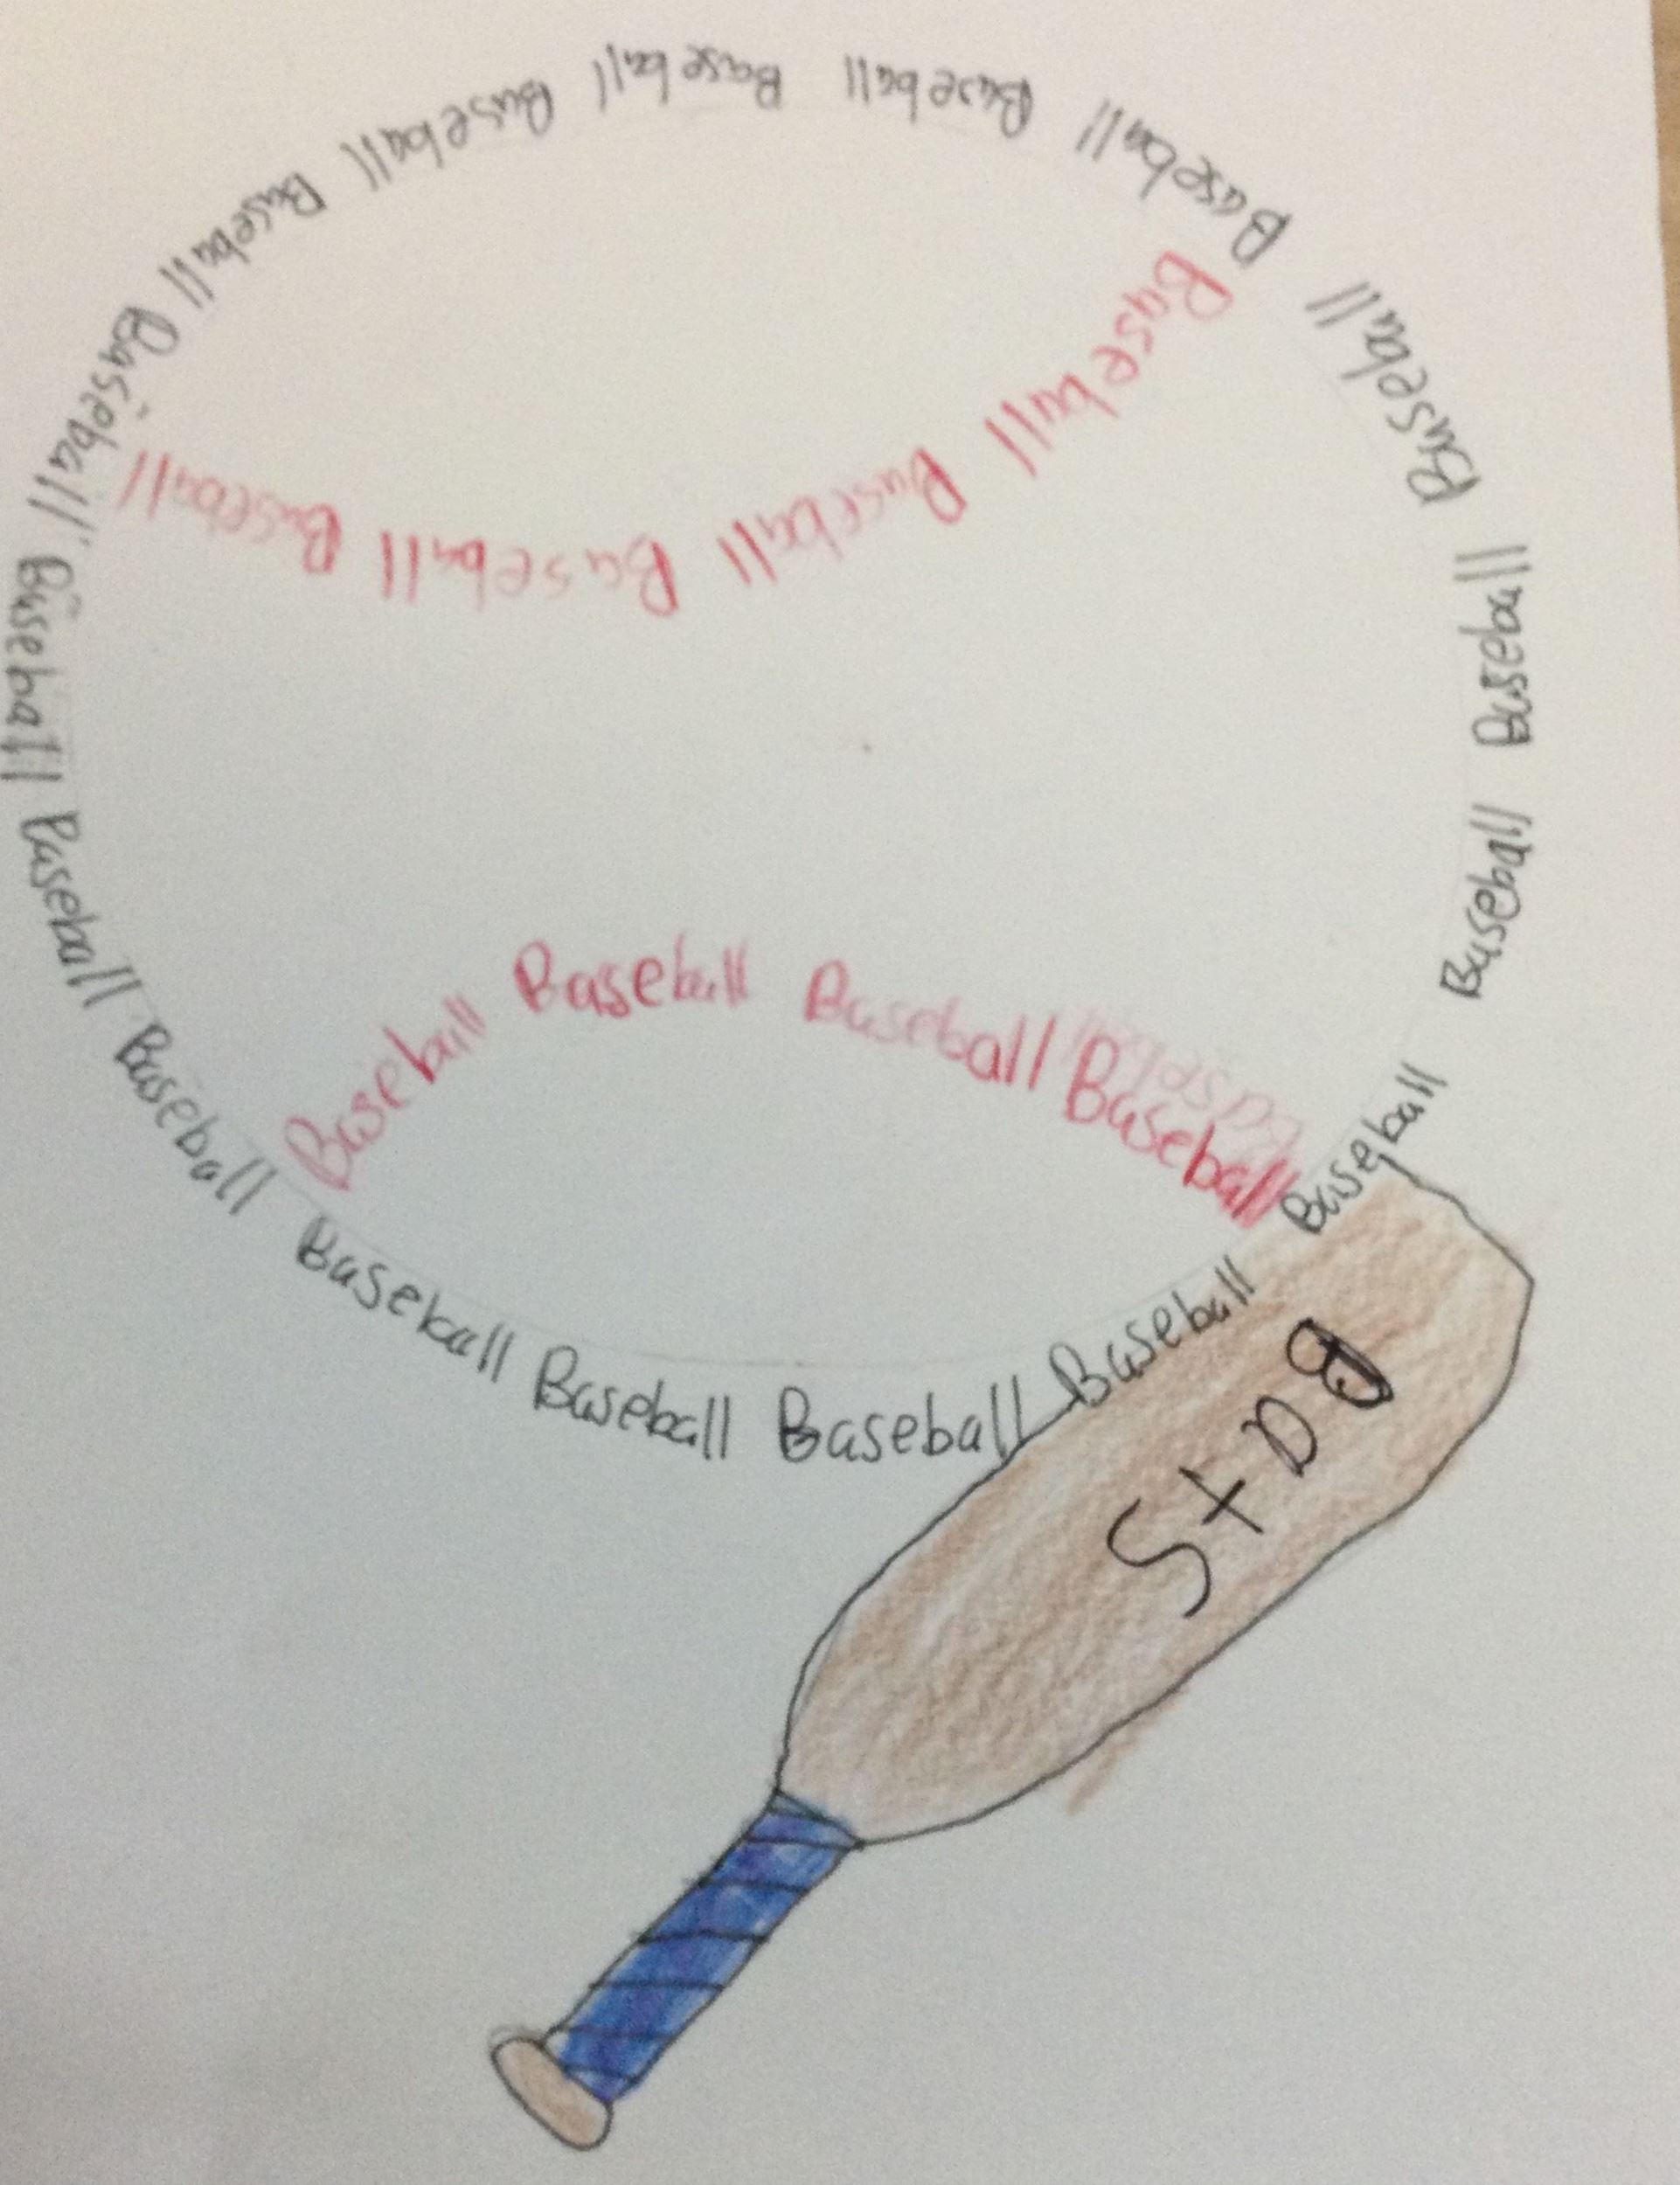 Baseball Baseball Baseball Baseball Baseball Baseball Baseball Baseball Baseball Baseball Baseball Baseball Baseball Baseball Baseball Baseball Baseball
Baseball Baseball Baseball Baseball
Baseball Baseball Baseball Baseball
Bats